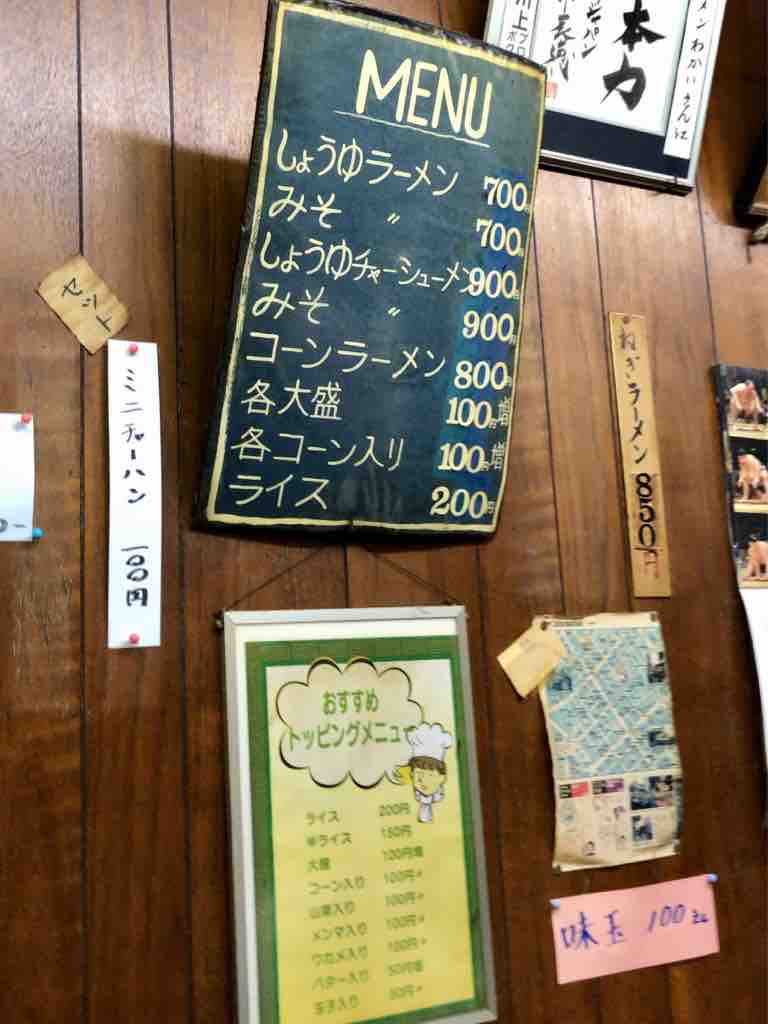 本力
メンわかいさん江
MENU
しょうゆラーメン 700円
みそ 〃 700円
しょうゆチャーシューメン 900円
みそ 〃 900円
コーンラーメン 800円
各大盛 100円増
各コーン入り 100円増
ライス 200円
セット
ミニチャーハン 一〇〇円
ねぎラーメン 850円
おすすめ
トッピングメニュー
ライス 200円
半ライス 150円
大盛 100円増
コーン入り 100円〃
山菜入り 100円〃
メンマ入り 100円〃
ワカメ入り 100円〃
バター入り 50円増
玉子入り 50円〃
味玉 100